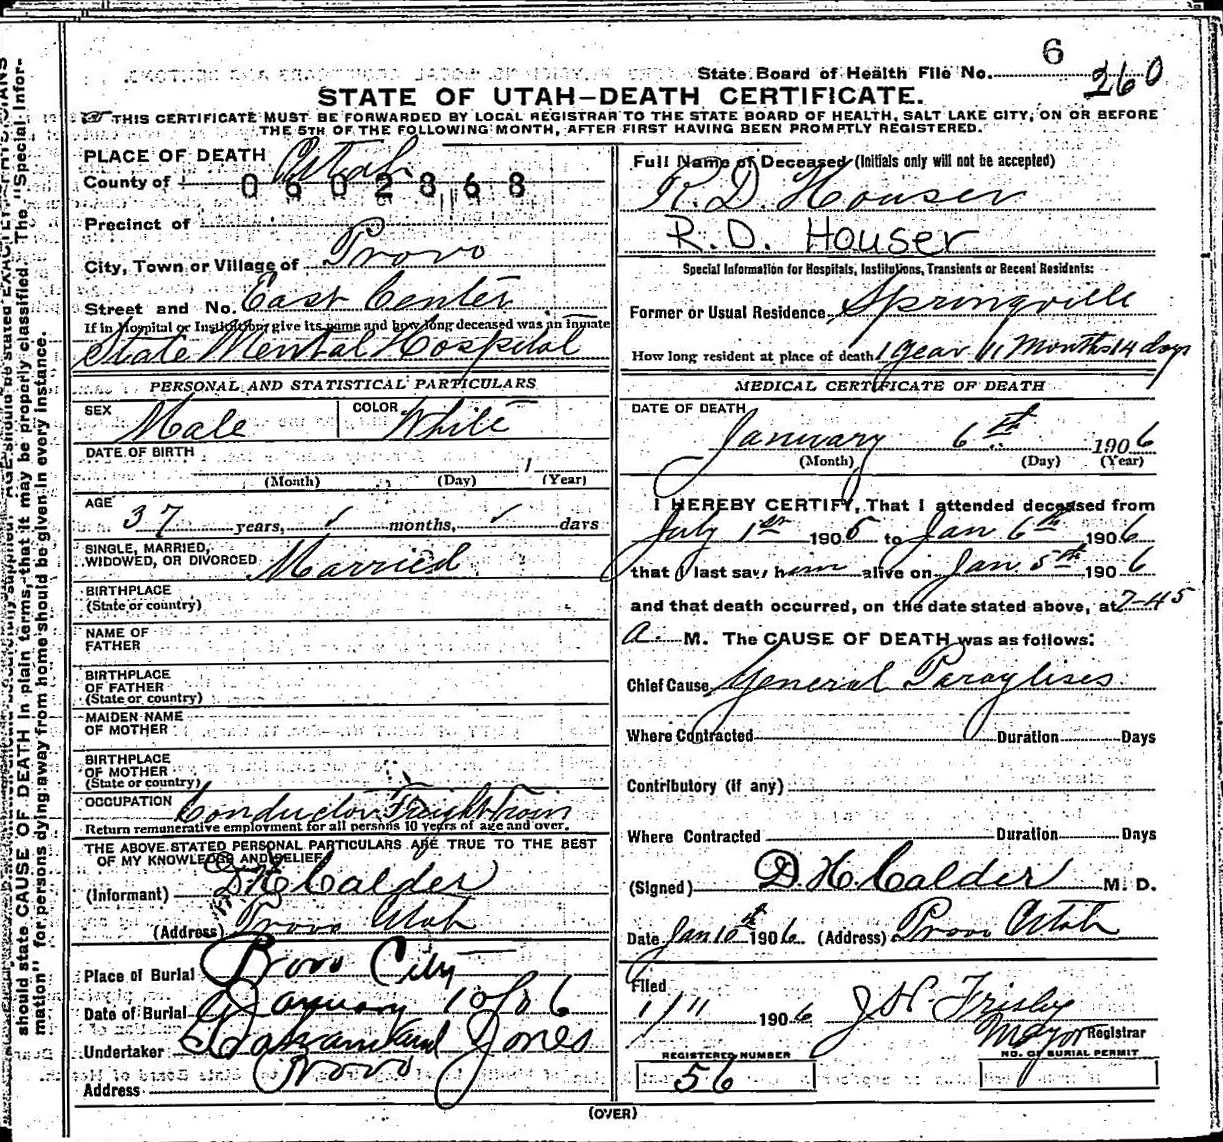 State Board of Health File No. 6 260
STATE OF UTAH—DEATH CERTIFICATE.
THIS CERTIFICATE MUST BE FORWARDED BY LOCAL REGISTRAR TO THE STATE BOARD OF HEALTH, SALT LAKE CITY, ON OR BEFORE
THE 5TH OF THE FOLLOWING MONTH, AFTER FIRST HAVING BEEN PROMPTLY REGISTERED.
should state CAUSE OF DEATH in plain terms, that it may be properly classified. The "Special Infor-
mation" for persons dying away from home should be given in every instance.
PLACE OF DEATH
County of Utah
0602868
Precinct of
City, Town or Village of Provo
Street and No. East Center
If in Hospital or Institution, give its name and how long deceased was an inmate
State Mental Hospital
PERSONAL AND STATISTICAL PARTICULARS
SEX Male COLOR White
DATE OF BIRTH
(Month) (Day) (Year)
AGE 37 years, ✓ months, ✓ days
SINGLE, MARRIED,
WIDOWED, OR DIVORCED Married
BIRTHPLACE
(State or country)
NAME OF
FATHER
BIRTHPLACE
OF FATHER
(State or country)
MAIDEN NAME
OF MOTHER
BIRTHPLACE
OF MOTHER
(State or country)
OCCUPATION Conductor Freight Train
Return remunerative employment for all persons 10 years of age and over.
THE ABOVE STATED PERSONAL PARTICULARS ARE TRUE TO THE BEST
OF MY KNOWLEDGE AND BELIEF
(Informant) D H Calder
(Address) Provo Utah
Place of Burial Provo City
Date of Burial January 10 06
Undertaker Jones
Address Provo
Full Name of Deceased (Initials only will not be accepted)
R. D. Houser
R.D. Houser
Special Information for Hospitals, Institutions, Transients or Recent Residents:
Former or Usual Residence Springville
How long resident at place of death 1 year 11 Months 14 days
MEDICAL CERTIFICATE OF DEATH
DATE OF DEATH
January 6th 1906
(Month) (Day) (Year)
I HEREBY CERTIFY, That I attended deceased from
July 1st 1905 to Jan 6th 1906
that I last saw him alive on Jan. 5th 1906
and that death occurred, on the date stated above, at 7-45
a. M. The CAUSE OF DEATH was as follows:
Chief Cause General Paraylises
Where Contracted Duration Days
Contributory (if any)
Where Contracted Duration Days
(Signed) D. H. Calder M. D.
Date Jan 10th 1906 (Address) Provo Utah
Filed
1/11 1906 J H Frisby
Mayor Registrar
REGISTERED NUMBER NO. OF BURIAL PERMIT
56
(OVER)